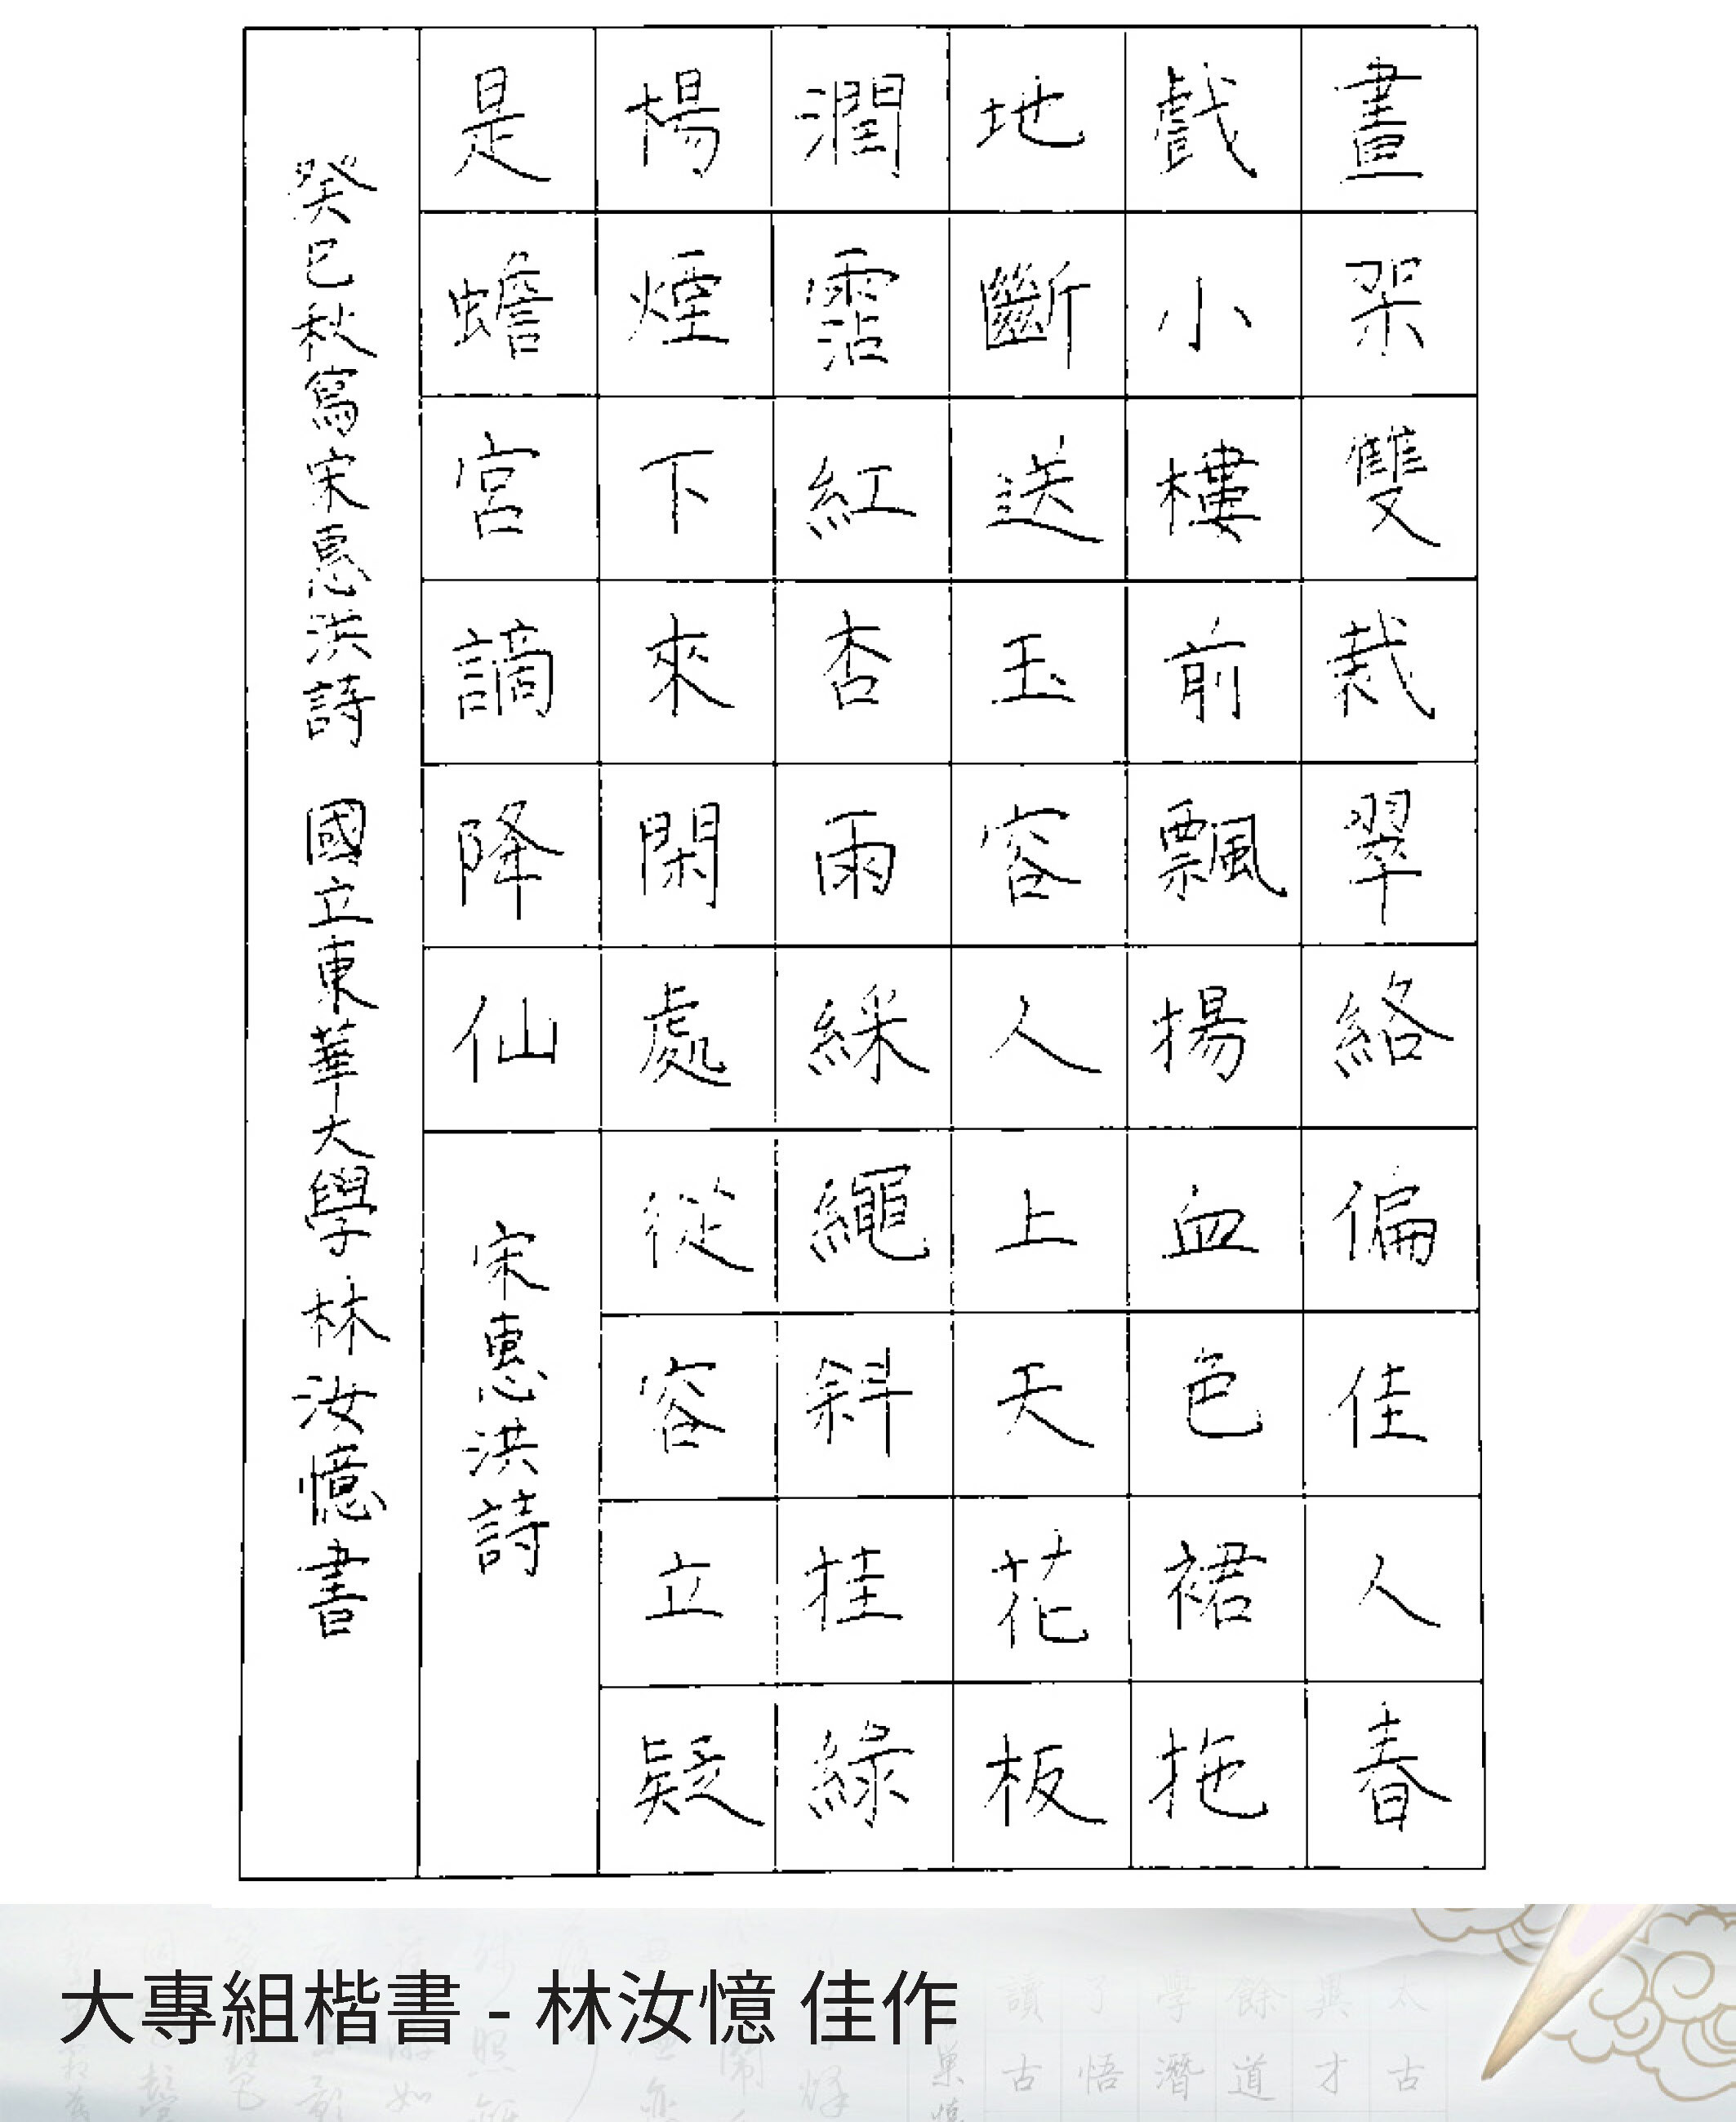 畫架雙裁翠絡偏佳人春
戲小樓前飄揚血色裙拖
地斷送玉容人上天花板
潤霑紅杏雨綵繩斜挂綠
楊煙下來閑處從容立疑
是蟾宮謫降仙 宋惠洪詩
癸巳秋寫宋惠洪詩 國立東華大學 林汝憶書
大專組楷書 - 林汝憶 佳作